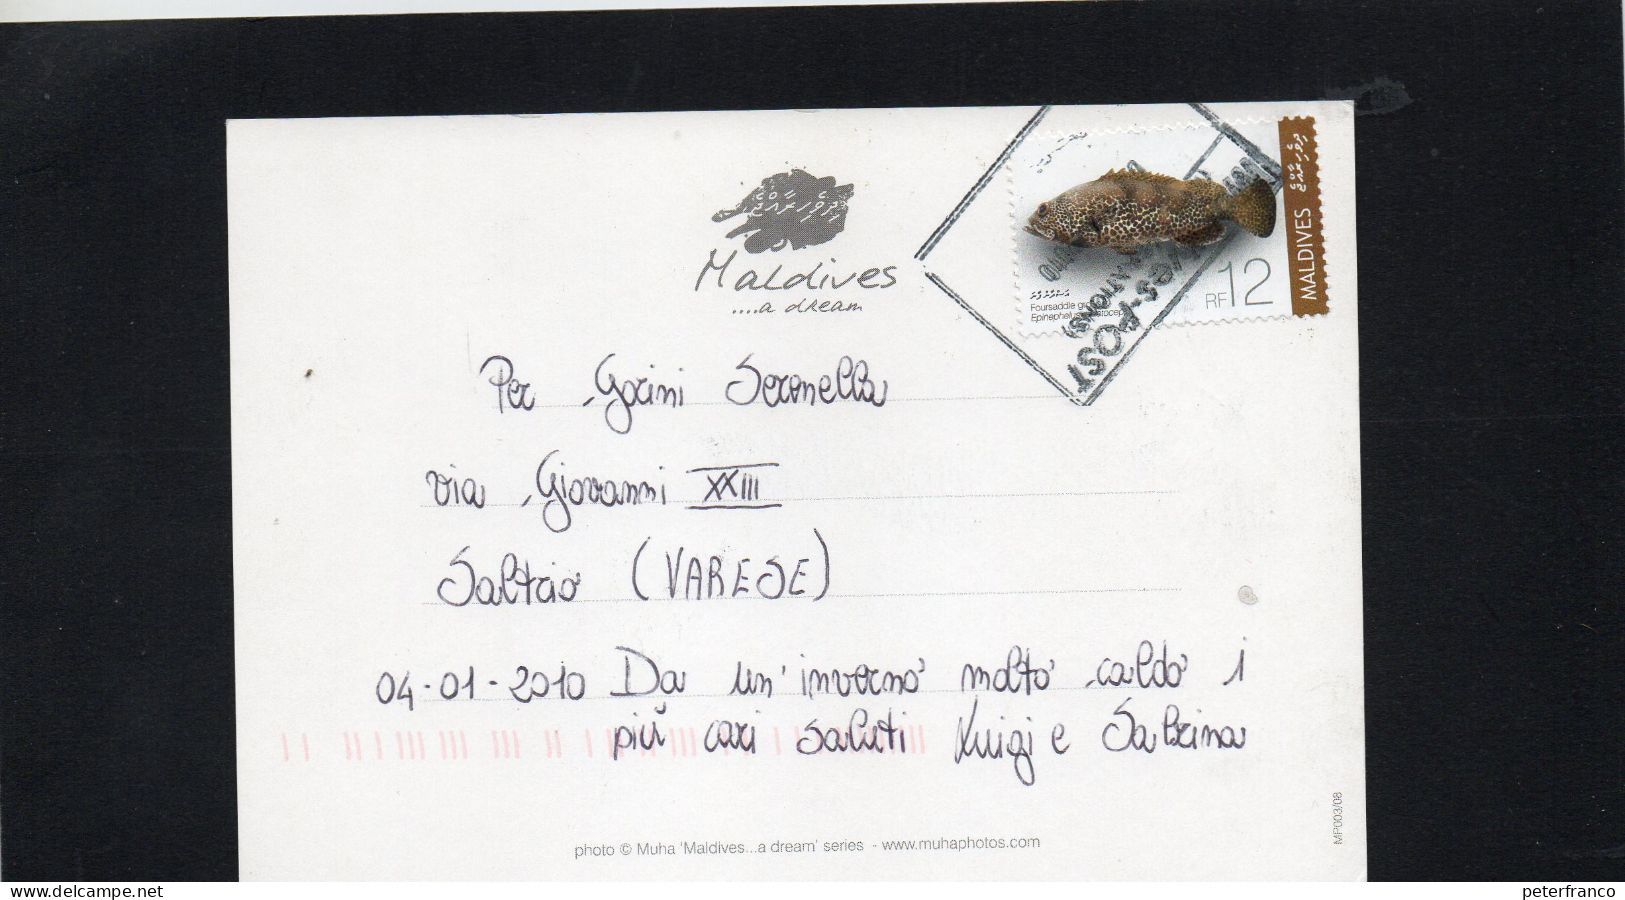 Maldives
....a dream
MALDIVES
RF 12
Foursaddle
Epinephelus
POST
Per Gorini Serenella
via Giovanni XXIII
Saltrio (VARESE)
04-01-2010 Da un'inverno molto caldo i
più cari saluti Luigi e Sabrina
photo © Muha 'Maldives...a dream' series - www.muhaphotos.com
MP003/08
www.delcampe.net
peterfranco